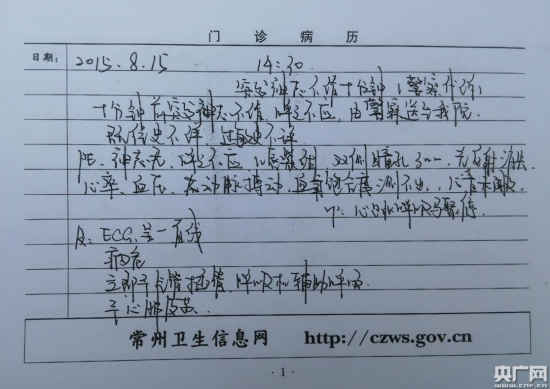 门诊病历
日期: 2015.8.15 14:30
突发神志不清十分钟(警察代诉)
十分钟前突发神志不清,呼之不应,由警察送至我院.
既往史不详,过敏史不详
PE: 神志 呼之不应, 双侧瞳孔 3mm, 光反射消失
心率、血压、 动脉搏动、血氧饱和度测不出, 心音未闻及
心跳呼吸骤停.
R: ECG 呈一直线
病危
立即予气管插管、呼吸机辅助呼吸
予心肺复苏
常州卫生信息网 http://czws.gov.cn
·1·
央广网
www.cnr.cn